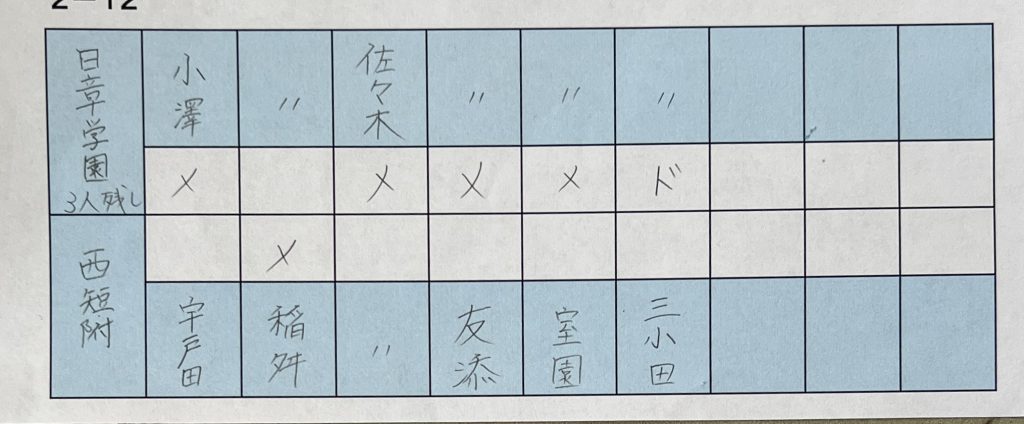 2-12
日章学園 3人残し 小澤 〃 佐々木 〃 〃 〃
メ メ メ メ ド
メ
西短附 宇戸田 稲舛 〃 友添 室園 三小田